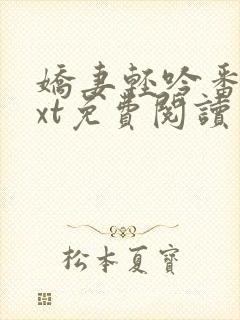 嬌妻輕吟番
xt免費閱讀
松本夏寶